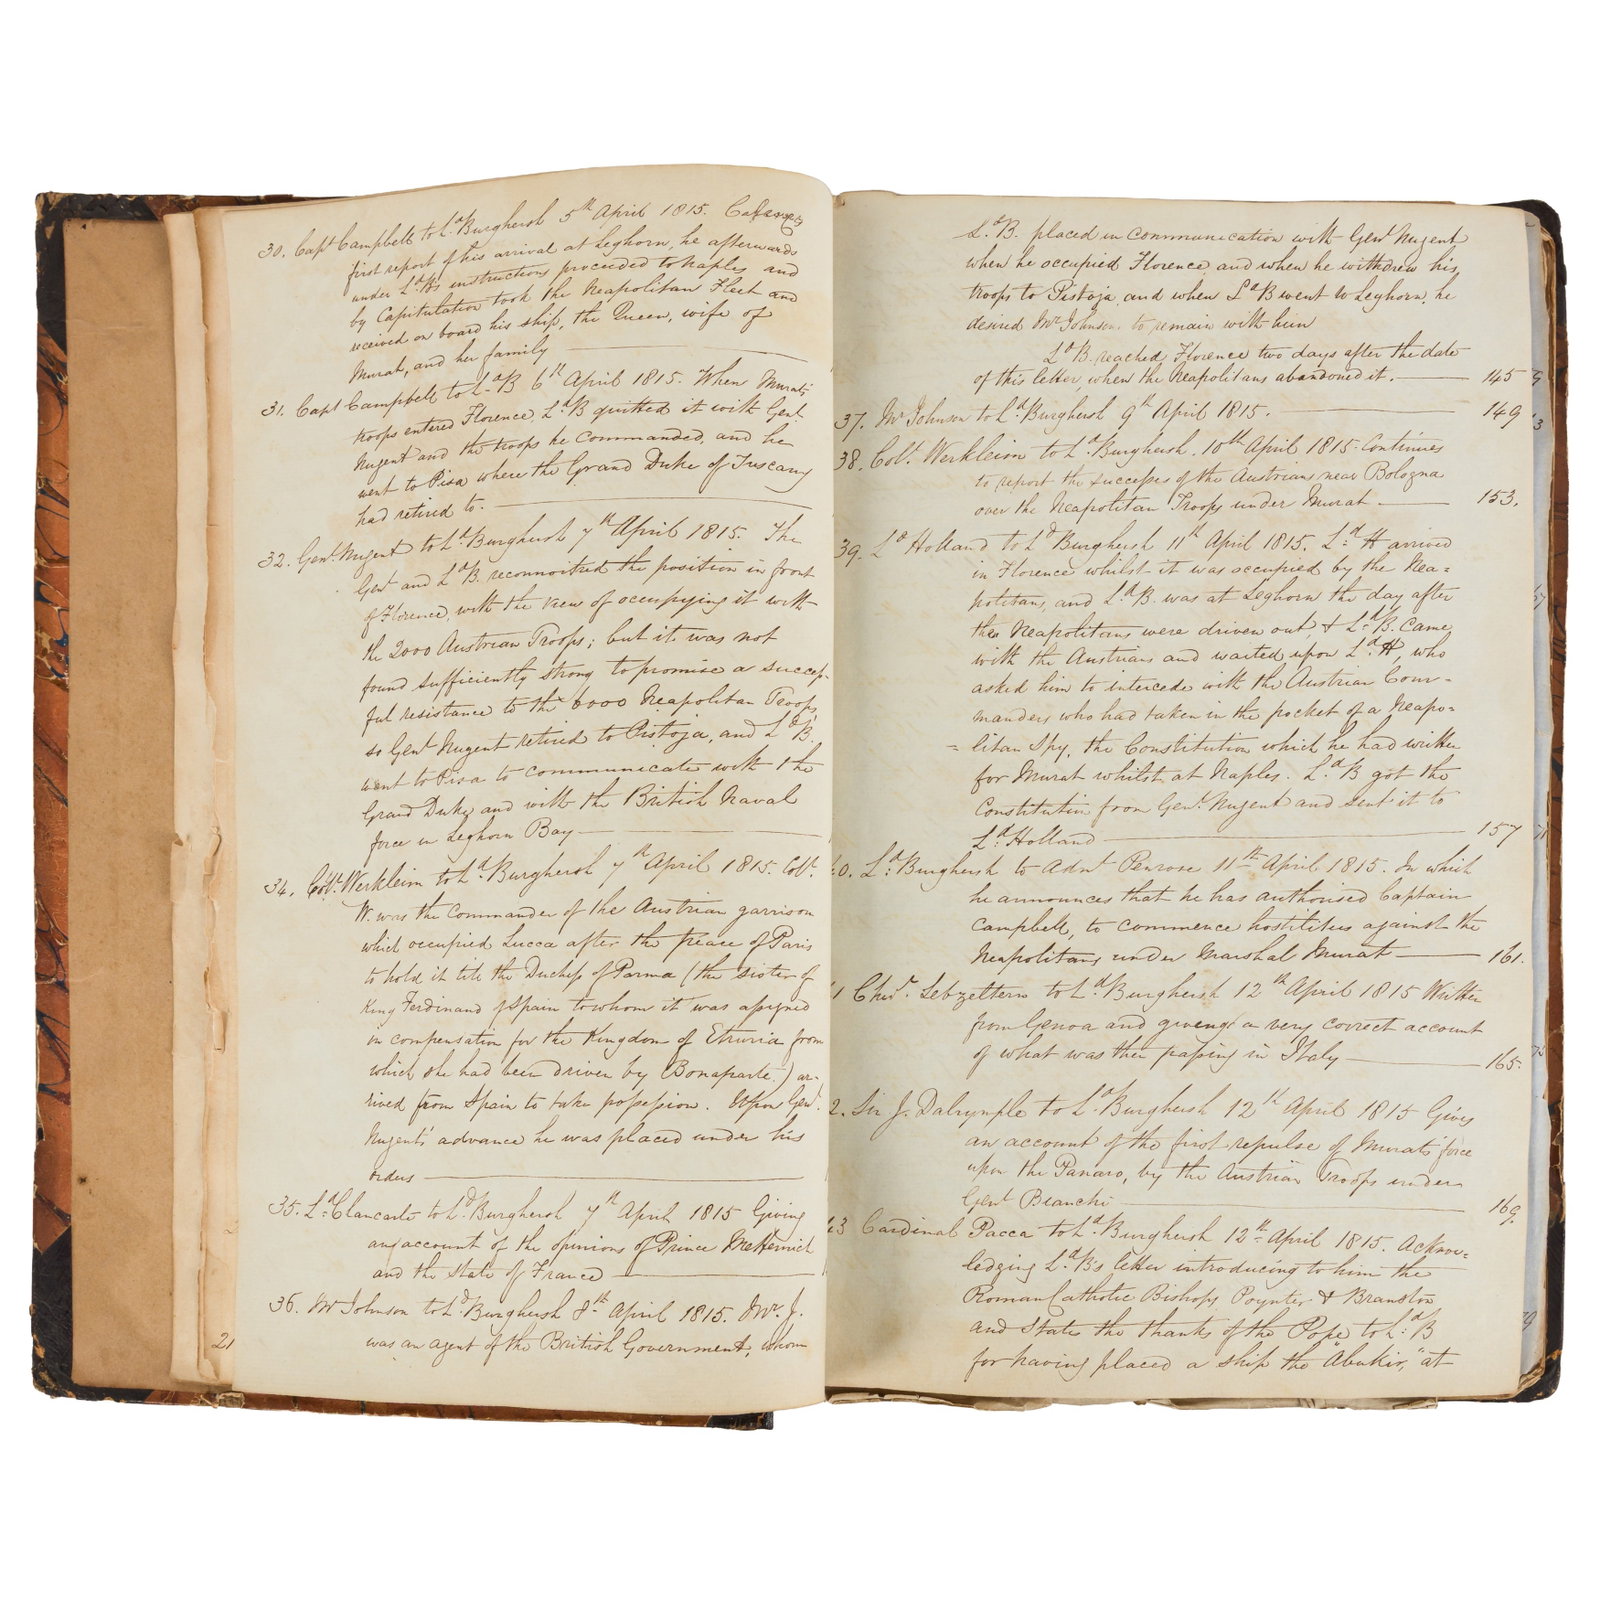 30. Capt Campbell to Ld. Burghersh 5th April 1815. Capt
first report of his arrival at Leghorn, he afterwards
under Ld. B's instructions proceeded to Naples and
by Capitulation took the Neapolitan Fleet and
received on board his ship, the Queen, wife of
Murat, and her family
31. Capt Campbell to Ld. B 6th April 1815. When Murat's
troops entered Florence, Ld. B quitted it with Genl.
Nugent and the troops he commanded, and he
went to Pisa where the Grand Duke of Tuscany
had retired to.
32. Genl. Nugent to Ld. Burghersh 7th April 1815. The
Genl and Ld. B. reconnoitred the position in front
of Florence, with the view of occupying it with
the 2000 Austrian Troops; but it was not
found sufficiently strong to promise a success-
ful resistance to the 6000 Neapolitan Troops,
so Genl Nugent retired to Pistoja, and Ld B.
went to Pisa to communicate with the
Grand Duke and with the British Naval
force in Leghorn Bay
34. Coll. Werkleim to Ld. Burghersh 7th April 1815. Coll.
W. was the Commander of the Austrian garrison
which occupied Lucca after the peace of Paris
to hold it till the Duchess of Parma (the sister of
King Ferdinand of Spain to whom it was assigned
in compensation for the Kingdom of Etruria from
which she had been driven by Bonaparte.) ar-
rived from Spain to take possession. Upon Genl.
Nugents' advance he was placed under his
orders
35. Ld. Clancarte to Ld. Burghersh 7th April 1815 Giving
any account of the opinions of Prince Metternich
and the State of France
36. Mr Johnson to Ld. Burghersh 8th April 1815. Mr. J.
was an agent of the British Government, whom
21
Ld. B. placed in communication with Genl Nugent
when he occupied Florence, and when he withdrew his
troops to Pistoja, and when Ld B went to Leghorn, he
desired Mr Johnson. to remain with him
Ld B. reached Florence two days after the date
of this letter, when the Neapolitans abandoned it. 145
37. Mr Johnson to Ld. Burghersh 9th April 1815. 149
38. Coll. Werkleim to Ld. Burghersh. 10th April 1815. Continues
to report the successes of the Austrians near Bologna
over the Neapolitan Troops under Murat 153.
39. Ld Holland to Ld Burghersh 11th April 1815. Ld. H arrived
in Florence whilst it was occupied by the Nea=
politans, and Ld. B. was at Leghorn the day after
the Neapolitans were driven out, & Ld. B. came
with the Austrians and waited upon Ld. H, who
asked him to intercede with the Austrian Com-
manders who had taken in the pocket of a Neapo=
=litan Spy, the Constitution which he had written
for Murat whilst at Naples. Ld. B got the
Constitution from Genl. Nugent and sent it to
Ld. Holland 157
0. Ld. Burghersh to Adml Penrose 11th April 1815. In which
he announces that he has authorised Captain
Campbell, to commence hostilities against the
Neapolitans under Marshal Murat 161.
1 Chevr. Lebzeltern to Ld. Burghersh 12th April 1815 Written
from Genoa and giving a very correct account
of what was then passing in Italy 165.
2. Sir J. Dalrymple to Ld. Burghersh 12th April 1815 Gives
an account of the first repulse of Murats' force
upon the Panaro, by the Austrian Troops under
Genl Bianchi 169.
3 Cardinal Pacca to Ld. Burghersh 12th April 1815. Acknow=
ledging Ld. B's letter introducing to him the
Roman Catholic Bishops Poynter & Branston
and States the thanks of the Pope to Ld. B
for having placed a ship the "Abukir," at